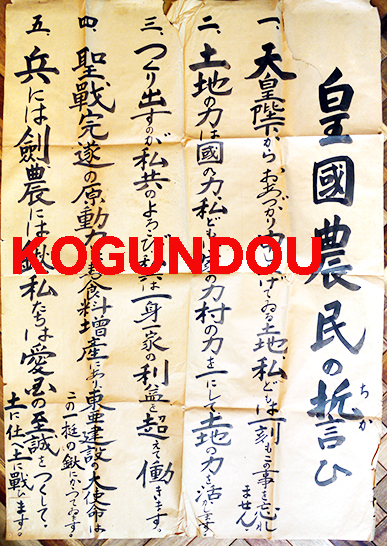 皇國農民の誓ひ
ちか
一、天皇陛下からおあづかり申上げてゐる土地私どもは一刻もこの事を忘れ
ません。
二、土地の力は國の力私どもは家の力村の力を一にして土地の力を活かします。
三、つくり出すのが私共のよろこび私共は一身一家の利益を超えて働きます。
四、聖戰完遂の原動力は食料増産にあり東亜建設の大使命は
この一挺の鍬にかつてゐます。
五、兵には劍農には鍬私たちは愛國の至誠をつくして、
土に仕へ土に戰ひます。
KOGUNDOU